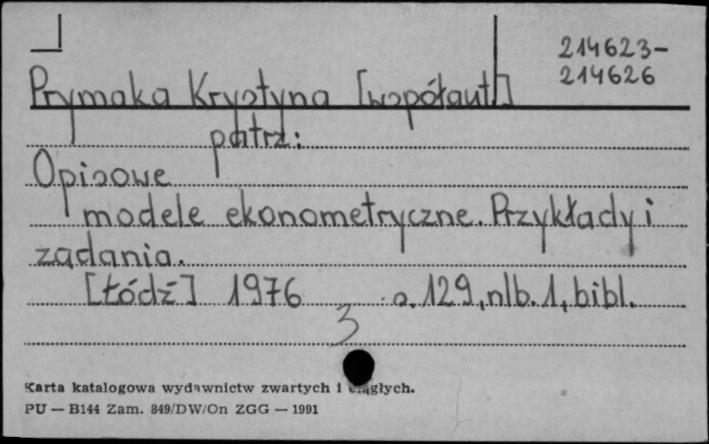 214623-
214626
Prymaka Krystyna [współaut.]
patrz:
Opisowe
modele ekonometryczne. Przykłady i
zadania.
[Łódź] 1976 s. 129, nlb. 1, bibl.
3
Karta katalogowa wydawnictw zwartych i ciągłych.
PU — B144 Zam. 849/DW/On ZGG — 1991